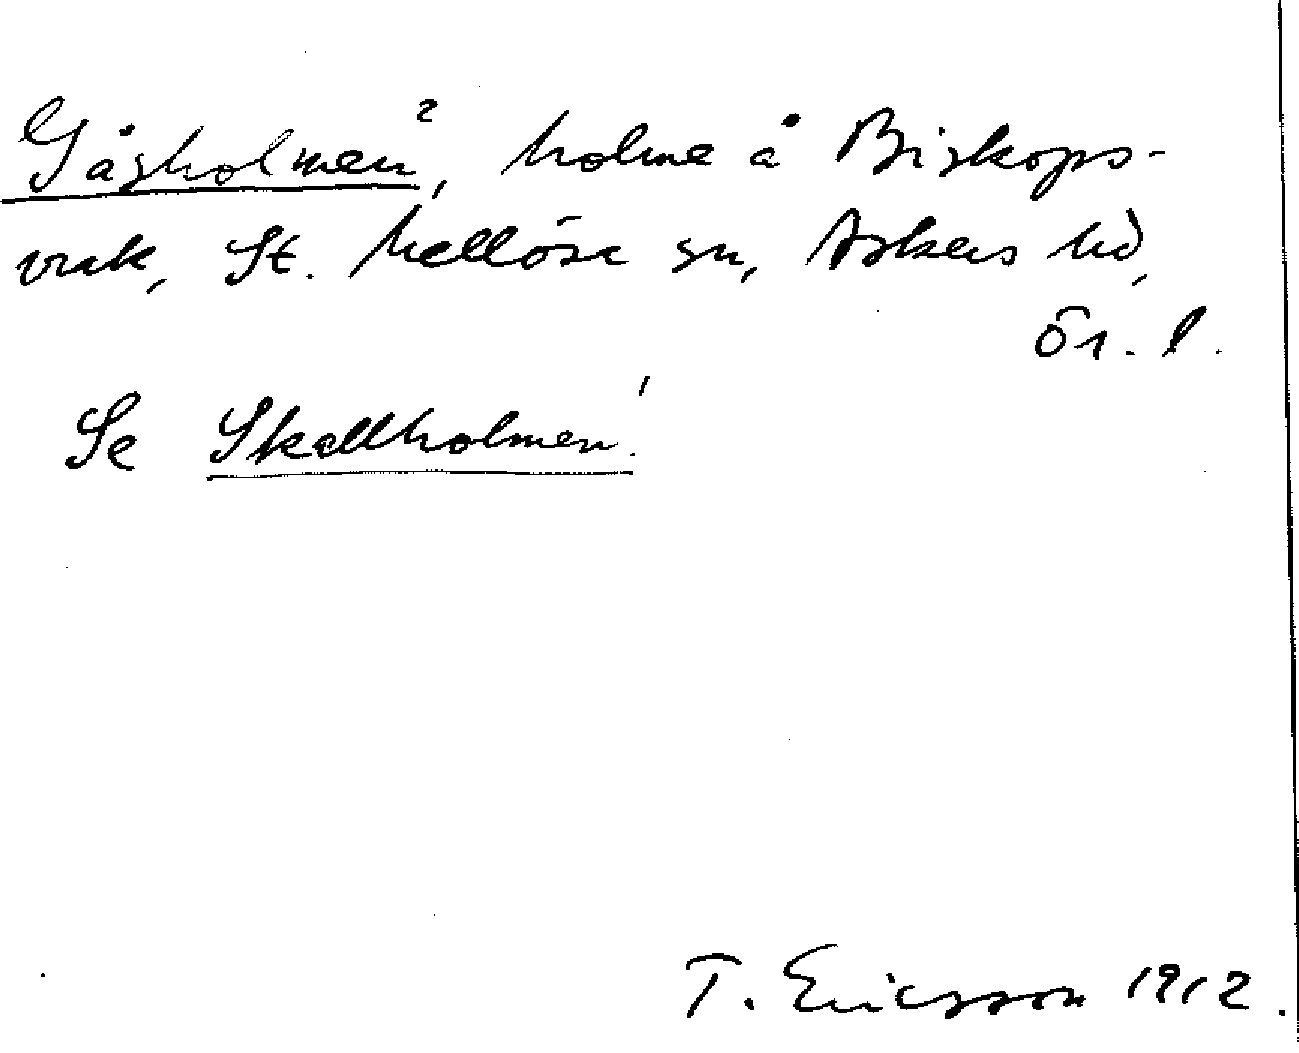 Gåsholmen², holme å Biskops-
vrak, St. Mellösa sn, Askers hd,
Ör. l.
Se Skallholmen!
T. Ericsson 1912.